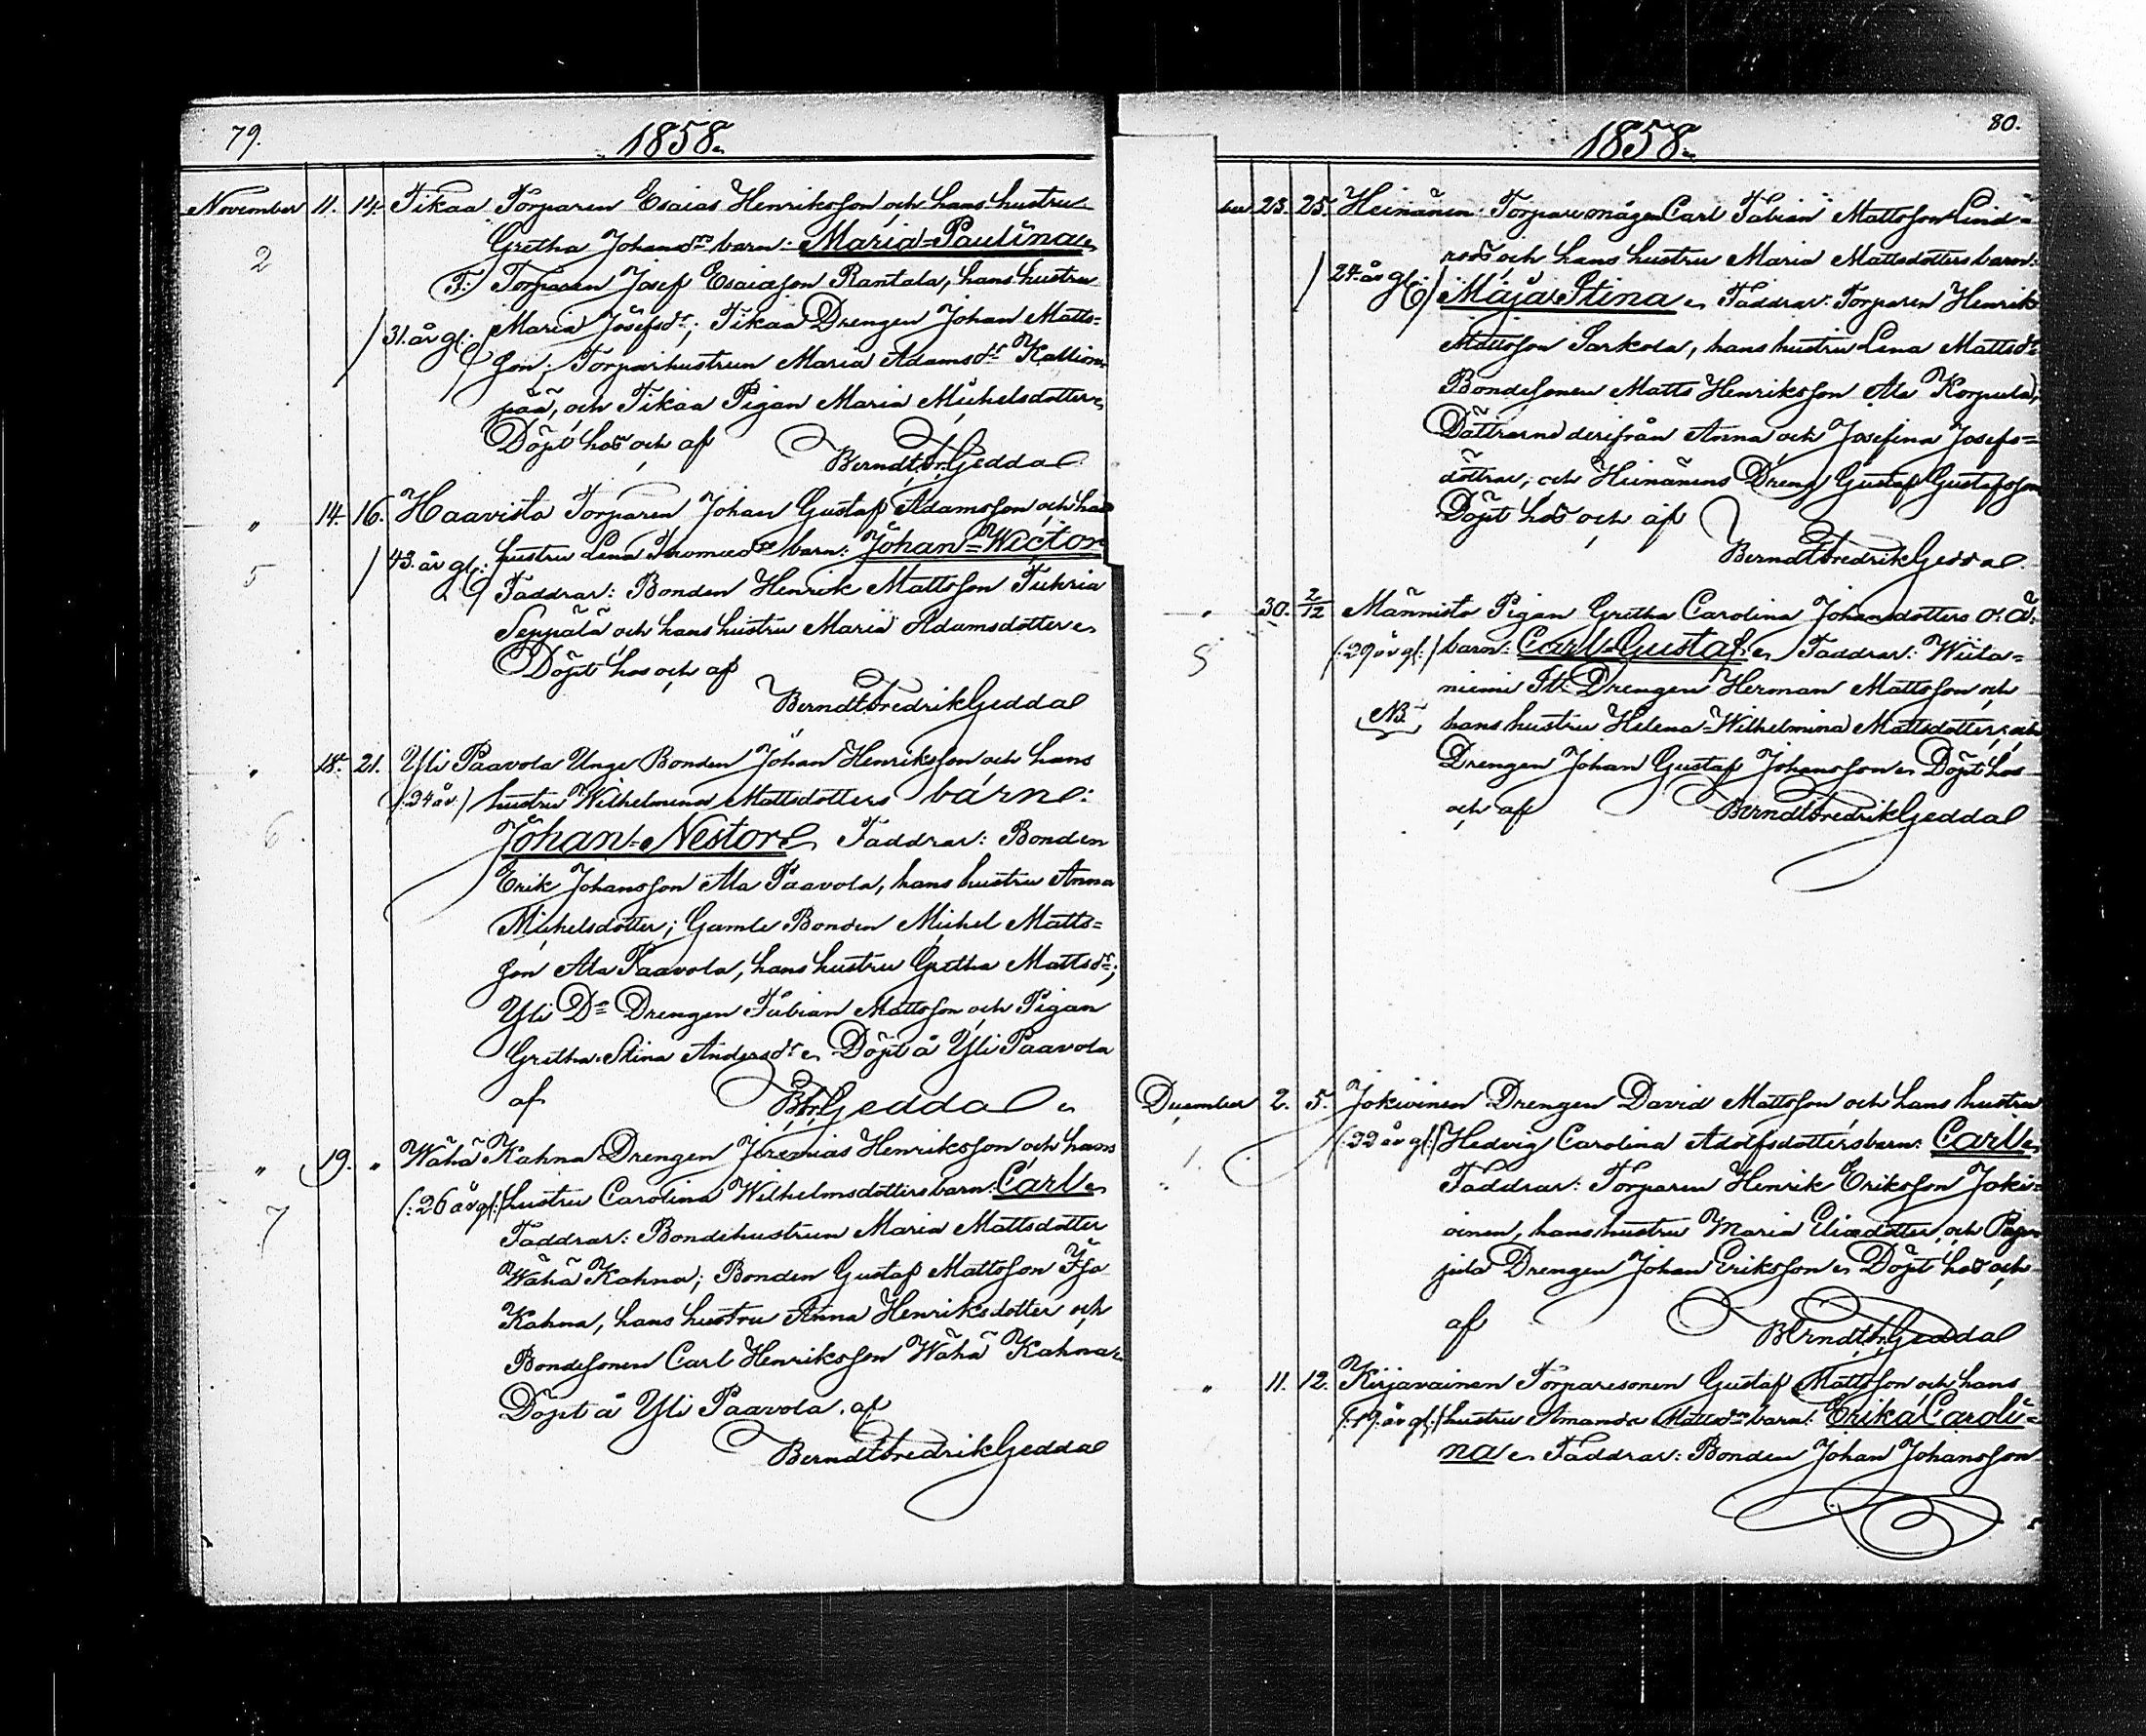 79.
1858.
November 11. 14. Tikaa Torparen Esaias Henriksson och hans hustru
2
Gretha Johansdrs barn: Maria=Paulina
F: Torparen Josef Esaiasson Rantala, hans hustru
/31. år gl:/ Maria Josefsdr; Tikaa Drengen Johan Matts=
son; Torparhustrun Maria Adamsdr Kallion
pää, och Tikaa Pigan Maria Michelsdotter
Döpt hos och af Berndt Fr. Gedda
" 14. 16. Haavisto Torparen Johan Gustaf Adamsson och hans
/43. år gl:/ hustru Lena Thomasdrs barn: Johan=Wictor
5
Faddrar: Bonden Henrik Mattsson Tuhria
Seppälä och hans hustru Maria Adamsdotter
Döpt hos och af
Berndt Fredrik Gedda
" 18. 21. Yli Paavola Unge Bonden Johan Henriksson och hans
(:24 år:) hustru Wilhelmina Mattsdotters barn:
6
Johan=Nestor Faddrar: Bonden
Erik Johansson Ala Paavola, hans hustru Anna
Michelsdotter; Gamle Bonden Michel Matts=
son Ala Paavola, hans hustru Gretha Mattsdr;
Yli Do Drengen Fabian Mattsson och Pigan
Gretha Stina Andersdr Döpt å Yli Paavola
af B. Fr. Gedda
" 19. " Wähä Kahna Drengen Jeremias Henriksson och hans
(:26 år gl:) hustru Carolina Wilhelmsdotters barn: Carl
7
Faddrar: Bondehustrun Maria Mattsdotter
Wähä Kahna; Bonden Gustaf Mattsson Iso
Kahna, hans hustru Anna Henriksdotter och
Bondesonen Carl Henriksson Wähä Kahna
Döpt å Yli Paavola af
Berndt Fredrik Gedda
80.
1858.
ber 23. 25. Heinänen Torparemågen Carl Fabian Mattsson Lind=
roos och hans hustru Maria Mattsdotters barn:
/24. år gl:/ Maja Stina Faddrar: Torparen Henrik
Mattsson Sarkola, hans hustru Lena Mattsdr
Bondesonen Matts Henriksson Ala Korpula,
Döttrarne derifrån Anna och Josefina Josefs=
döttrar, och Heinänens Dreng Gustaf Gustafsson
Döpt hos och af
Berndt Fredrik Gedda
" 30. 2/12 Männistö Pigan Gretha Carolina Johansdotters o. ä.
5
(:29 år gl:) barn: Carl=Gustaf Faddrar: Wiita=
niemi St. Drengen Herman Mattsson och
NB hans hustru Helena=Wilhelmina Mattsdotter, och
Drengen Johan Gustaf Johansson Döpt hos
och af Berndt Fredrik Gedda
December 2. 5. Jokioinen Drengen David Mattsson och hans hustru
1.
(:22 år gl:) Hedvig Carolina Adolfsdotters barn: Carl
Faddrar: Torparen Henrik Eriksson Joki=
oinen, hans hustru Maria Eliædotter, och
Drengen Johan Eriksson Döpt hos och
af Berndt Fr. Gedda
" 11. 12. Kirjavainen Torparesonen Gustaf Mattsson och hans
(:19. år gl:) hustru Amanda Mattsdrs barn: Erika Caroli=
na Faddrar: Bonden Johan Johansson